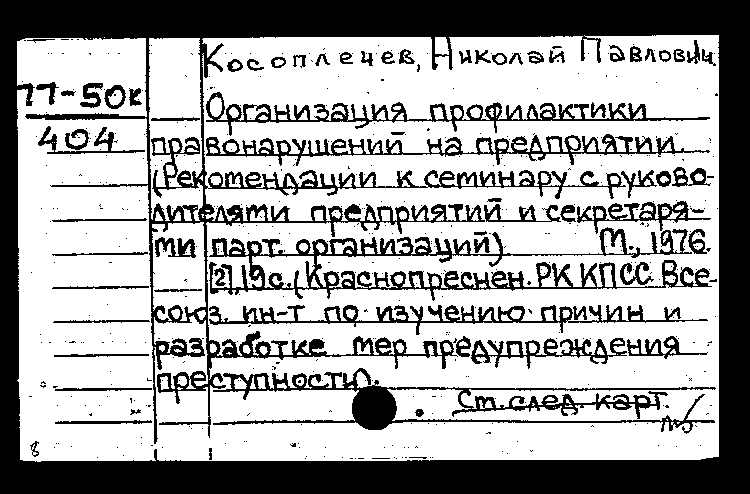 Косоплечев, Николай Павлович
77-50к
404
Организация профилактики
правонарушений на предприятии.
(Рекомендации к семинару с руково-
дителями предприятий и секретаря-
ми парт. организаций) М., 1976.
[2], 19с. (Краснопреснен. РК КПСС. Все-
союз. ин-т по изучению причин и
разработке мер предупреждения
преступности).
См. след. карт.
8